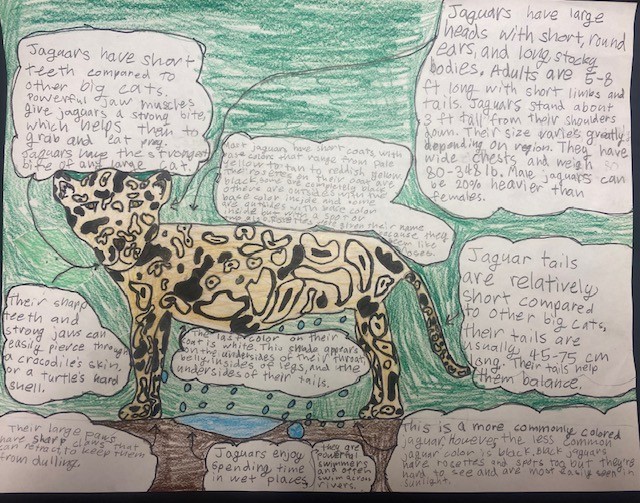 Jaguars have short
teeth compared to
other big cats.
Powerful jaw muscles
give jaguars a strong bite,
which helps them to
grab and eat prey.
Jaguars have the strongest
bite of any large cat.
Jaguars have large
heads with short, round
ears, and long, stocky
bodies. Adults are 5-8
ft long with short limbs and
tails. Jaguars stand about
3 ft tall from their shoulders
down. Their size varies greatly
depending on region. They have
wide chests and weigh
80-348 lb. Male jaguars can
be 20% heavier than
females.
Most jaguars have short coats with
base color that range from pale
yellow to tan to reddish yellow.
Their rosettes are black
are completely black
others are outlined with
base color inside and some
are outlined with base color
inside but with spots
given their name
because they
like
roses.
Jaguar tails
are relatively
short compared
to other big cats,
their tails are
usually 45-75 cm
long. Their tails help
them balance.
Their sharp
teeth and
strong jaws can
easily pierce through
a crocodile's skin,
or a turtle's hard
shell.
The last color on their
coat is white. This shade appears
on the undersides of their throat
belly, insides of legs, and the
undersides of their tails.
Their large paws
have sharp claws that
can retract to keep them
from dulling.
Jaguars enjoy
spending time
in wet places
they are
powerful
swimmers
and often
swim across
rivers.
This is a more commonly colored
jaguar, however the less common
jaguar color is black. Black jaguars
have rosettes and spots too but they're
hard to see and are most easily seen in
sunlight.